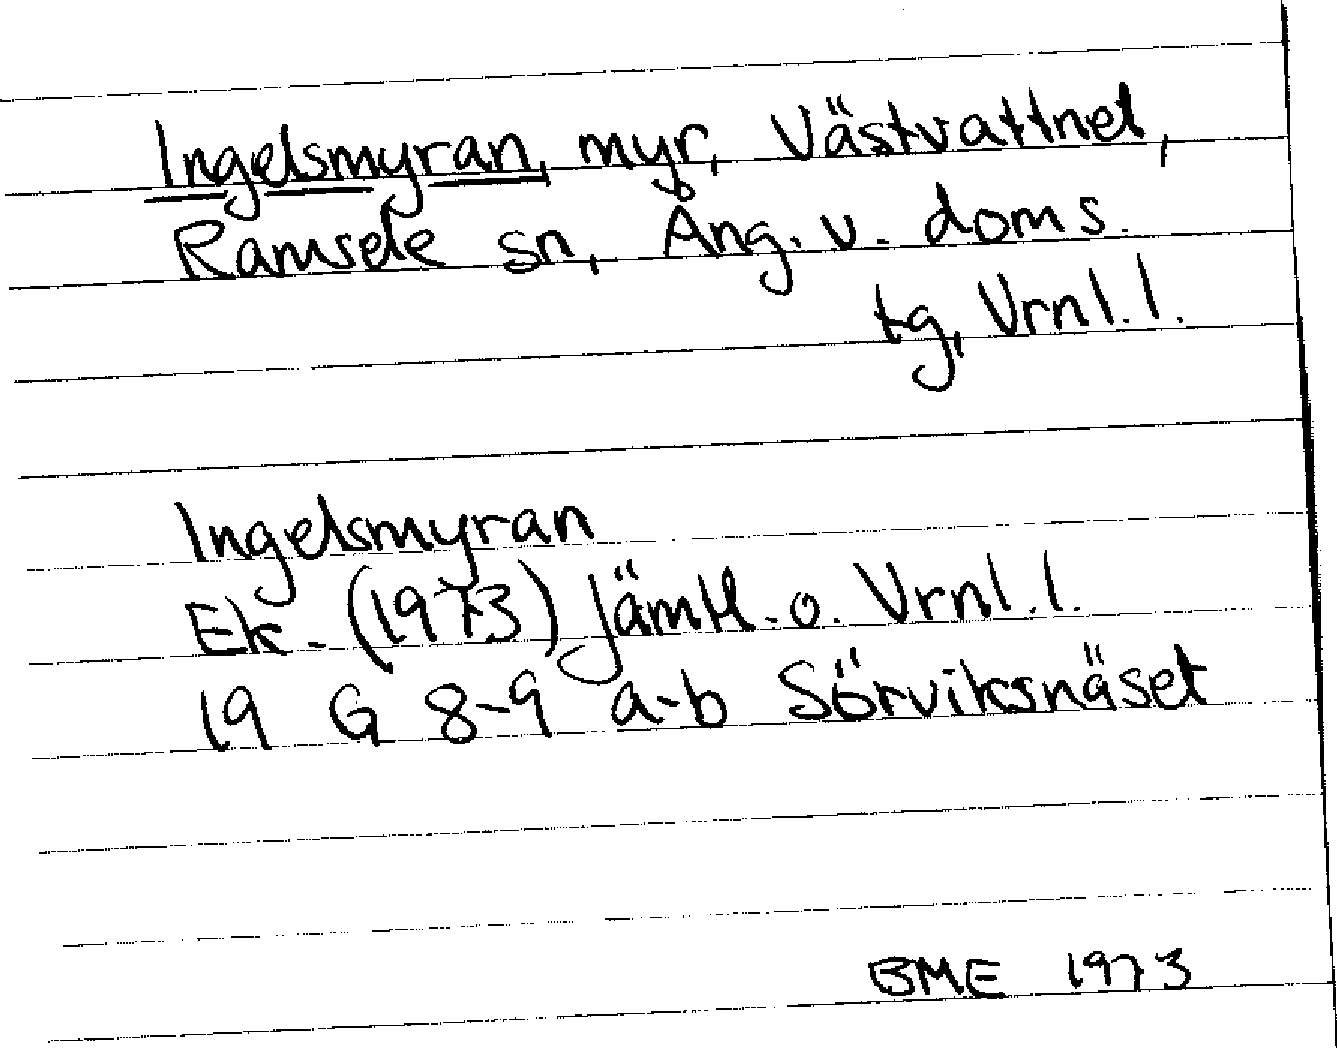 Ingelsmyran, myr, Västvattnet,
Ramsele sn, Ång. v. doms.
tg, Vrnl. l.
Ingelsmyran
Ek. (1973) Jämtl. o. Vrnl. l.
19 G 8-9 a-b Sörviksnäset
BME 1973